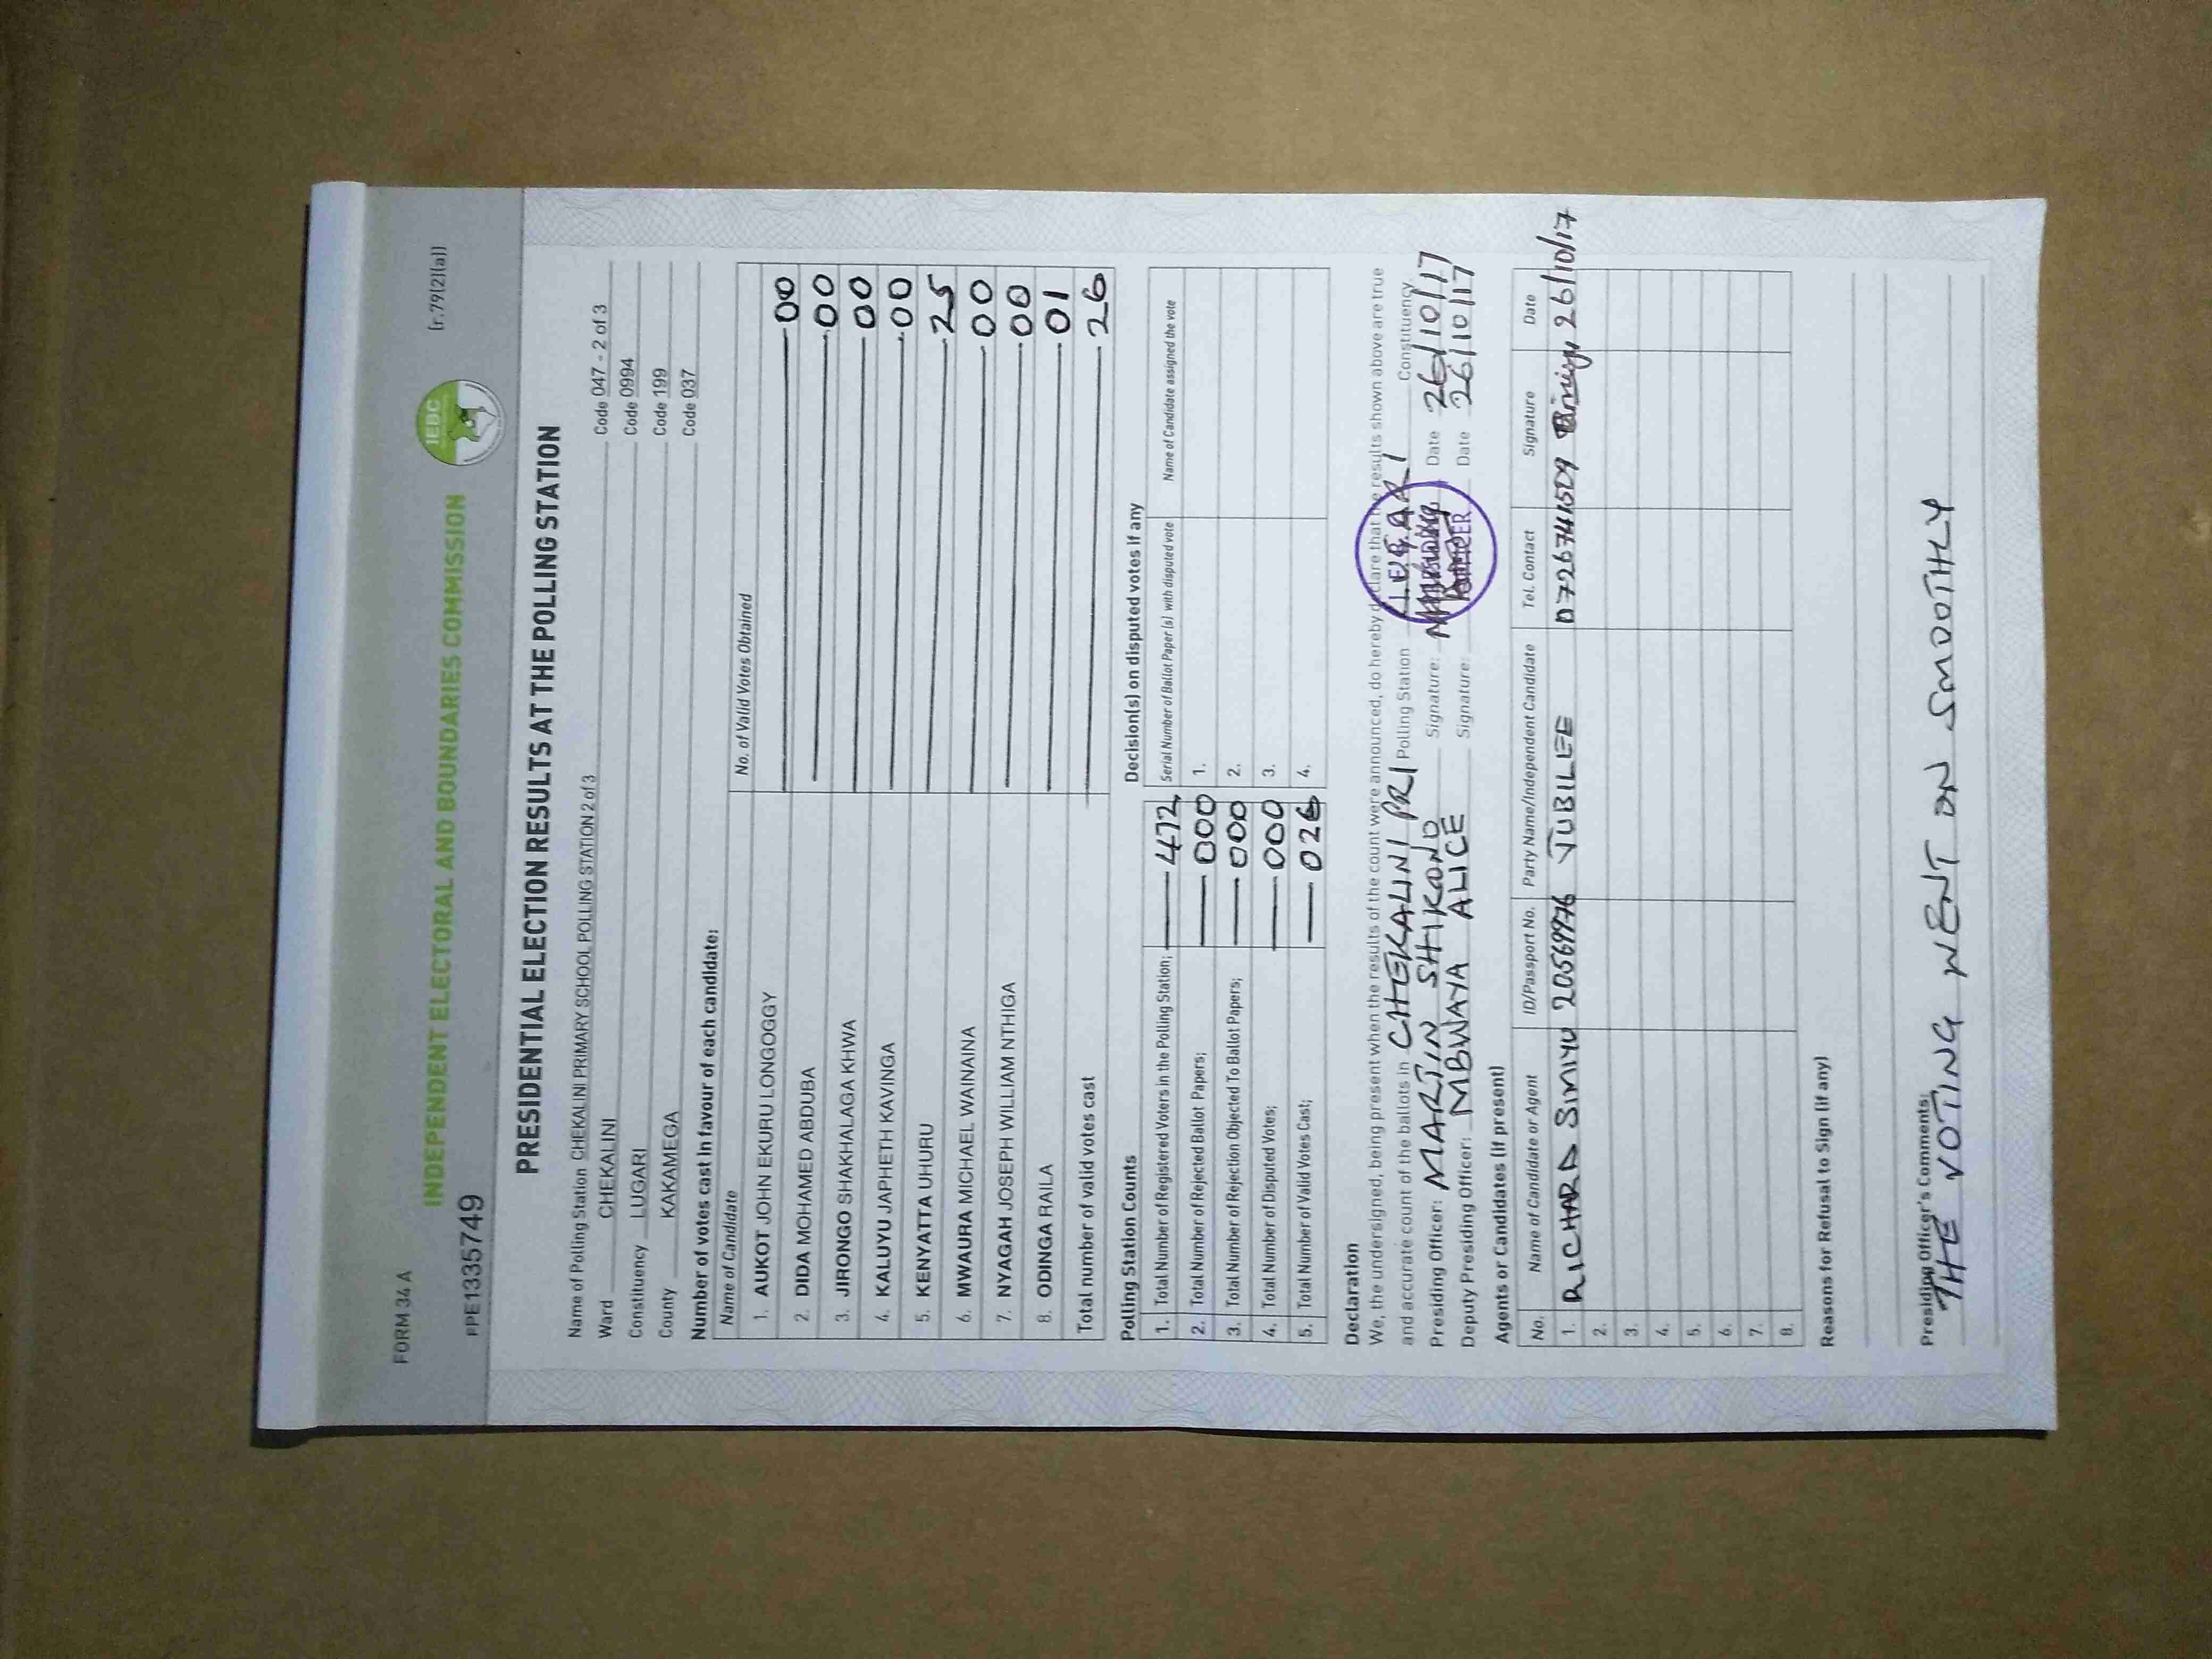 FORM 34 A
(r.79(2)(a))
INDEPENDENT ELECTORAL AND BOUNDARIES COMMISSION
IEBC
PPE1335749
PRESIDENTIAL ELECTION RESULTS AT THE POLLING STATION
Name of Polling Station CHEKALINI PRIMARY SCHOOL POLLING STATION 2 of 3 Code 047 - 2 of 3
Ward CHEKALINI Code 0994
Constituency LUGARI Code 199
County KAKAMEGA Code 037
Number of votes cast in favour of each candidate:
Name of Candidate No. of Valid Votes Obtained
1. AUKOT JOHN EKURU LONGOGGY 00
2. DIDA MOHAMED ABDUBA 00
3. JIRONGO SHAKHALAGA KHWA 00
4. KALUYU JAPHETH KAVINGA 00
5. KENYATTA UHURU 25
6. MWAURA MICHAEL WAINAINA 00
7. NYAGAH JOSEPH WILLIAM NTHIGA 00
8. ODINGA RAILA 01
Total number of valid votes cast 26
Polling Station Counts Decision(s) on disputed votes if any
1. Total Number of Registered Voters in the Polling Station; 472 Serial Number of Ballot Paper (s) with disputed vote Name of Candidate assigned the vote
2. Total Number of Rejected Ballot Papers; 000 1.
3. Total Number of Rejection Objected To Ballot Papers; 000 2.
4. Total Number of Disputed Votes; 000 3.
5. Total Number of Valid Votes Cast; 026 4.
Declaration
We, the undersigned, being present when the results of the count were announced, do hereby declare that the results shown above are true
and accurate count of the ballots in CHEKALINI PRI Polling Station LUGARI Constituency
Presiding Officer: MARTIN SHIKOND Signature: Date 26/10/17
Deputy Presiding Officer: MBWAYA ALICE Signature: Date 26/10/17
Agents or Candidates (if present)
No. Name of Candidate or Agent ID/Passport No. Party Name/Independent Candidate Tel. Contact Signature Date
1. RICHARD SIMIYU 20569976 JUBILEE 26/10/17
2.
3.
4.
5.
6.
7.
8.
Reasons for Refusal to Sign (if any)
Presiding Officer's Comments:
THE VOTING WENT ON SMOOTHLY